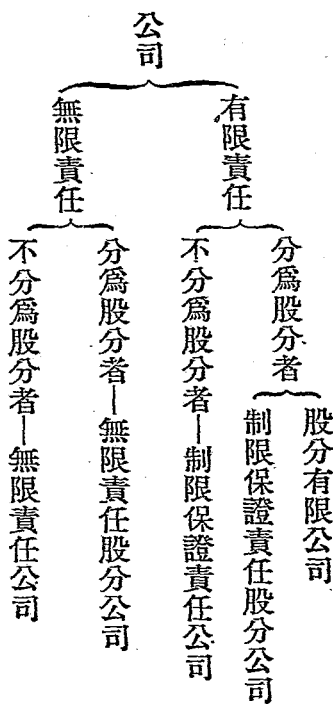 公司
有限責任
分爲股分者
股分有限公司
制限保證責任股分公司
不分爲股分者—制限保證責任公司
無限責任
分爲股分者—無限責任股分公司
不分爲股分者—無限責任公司